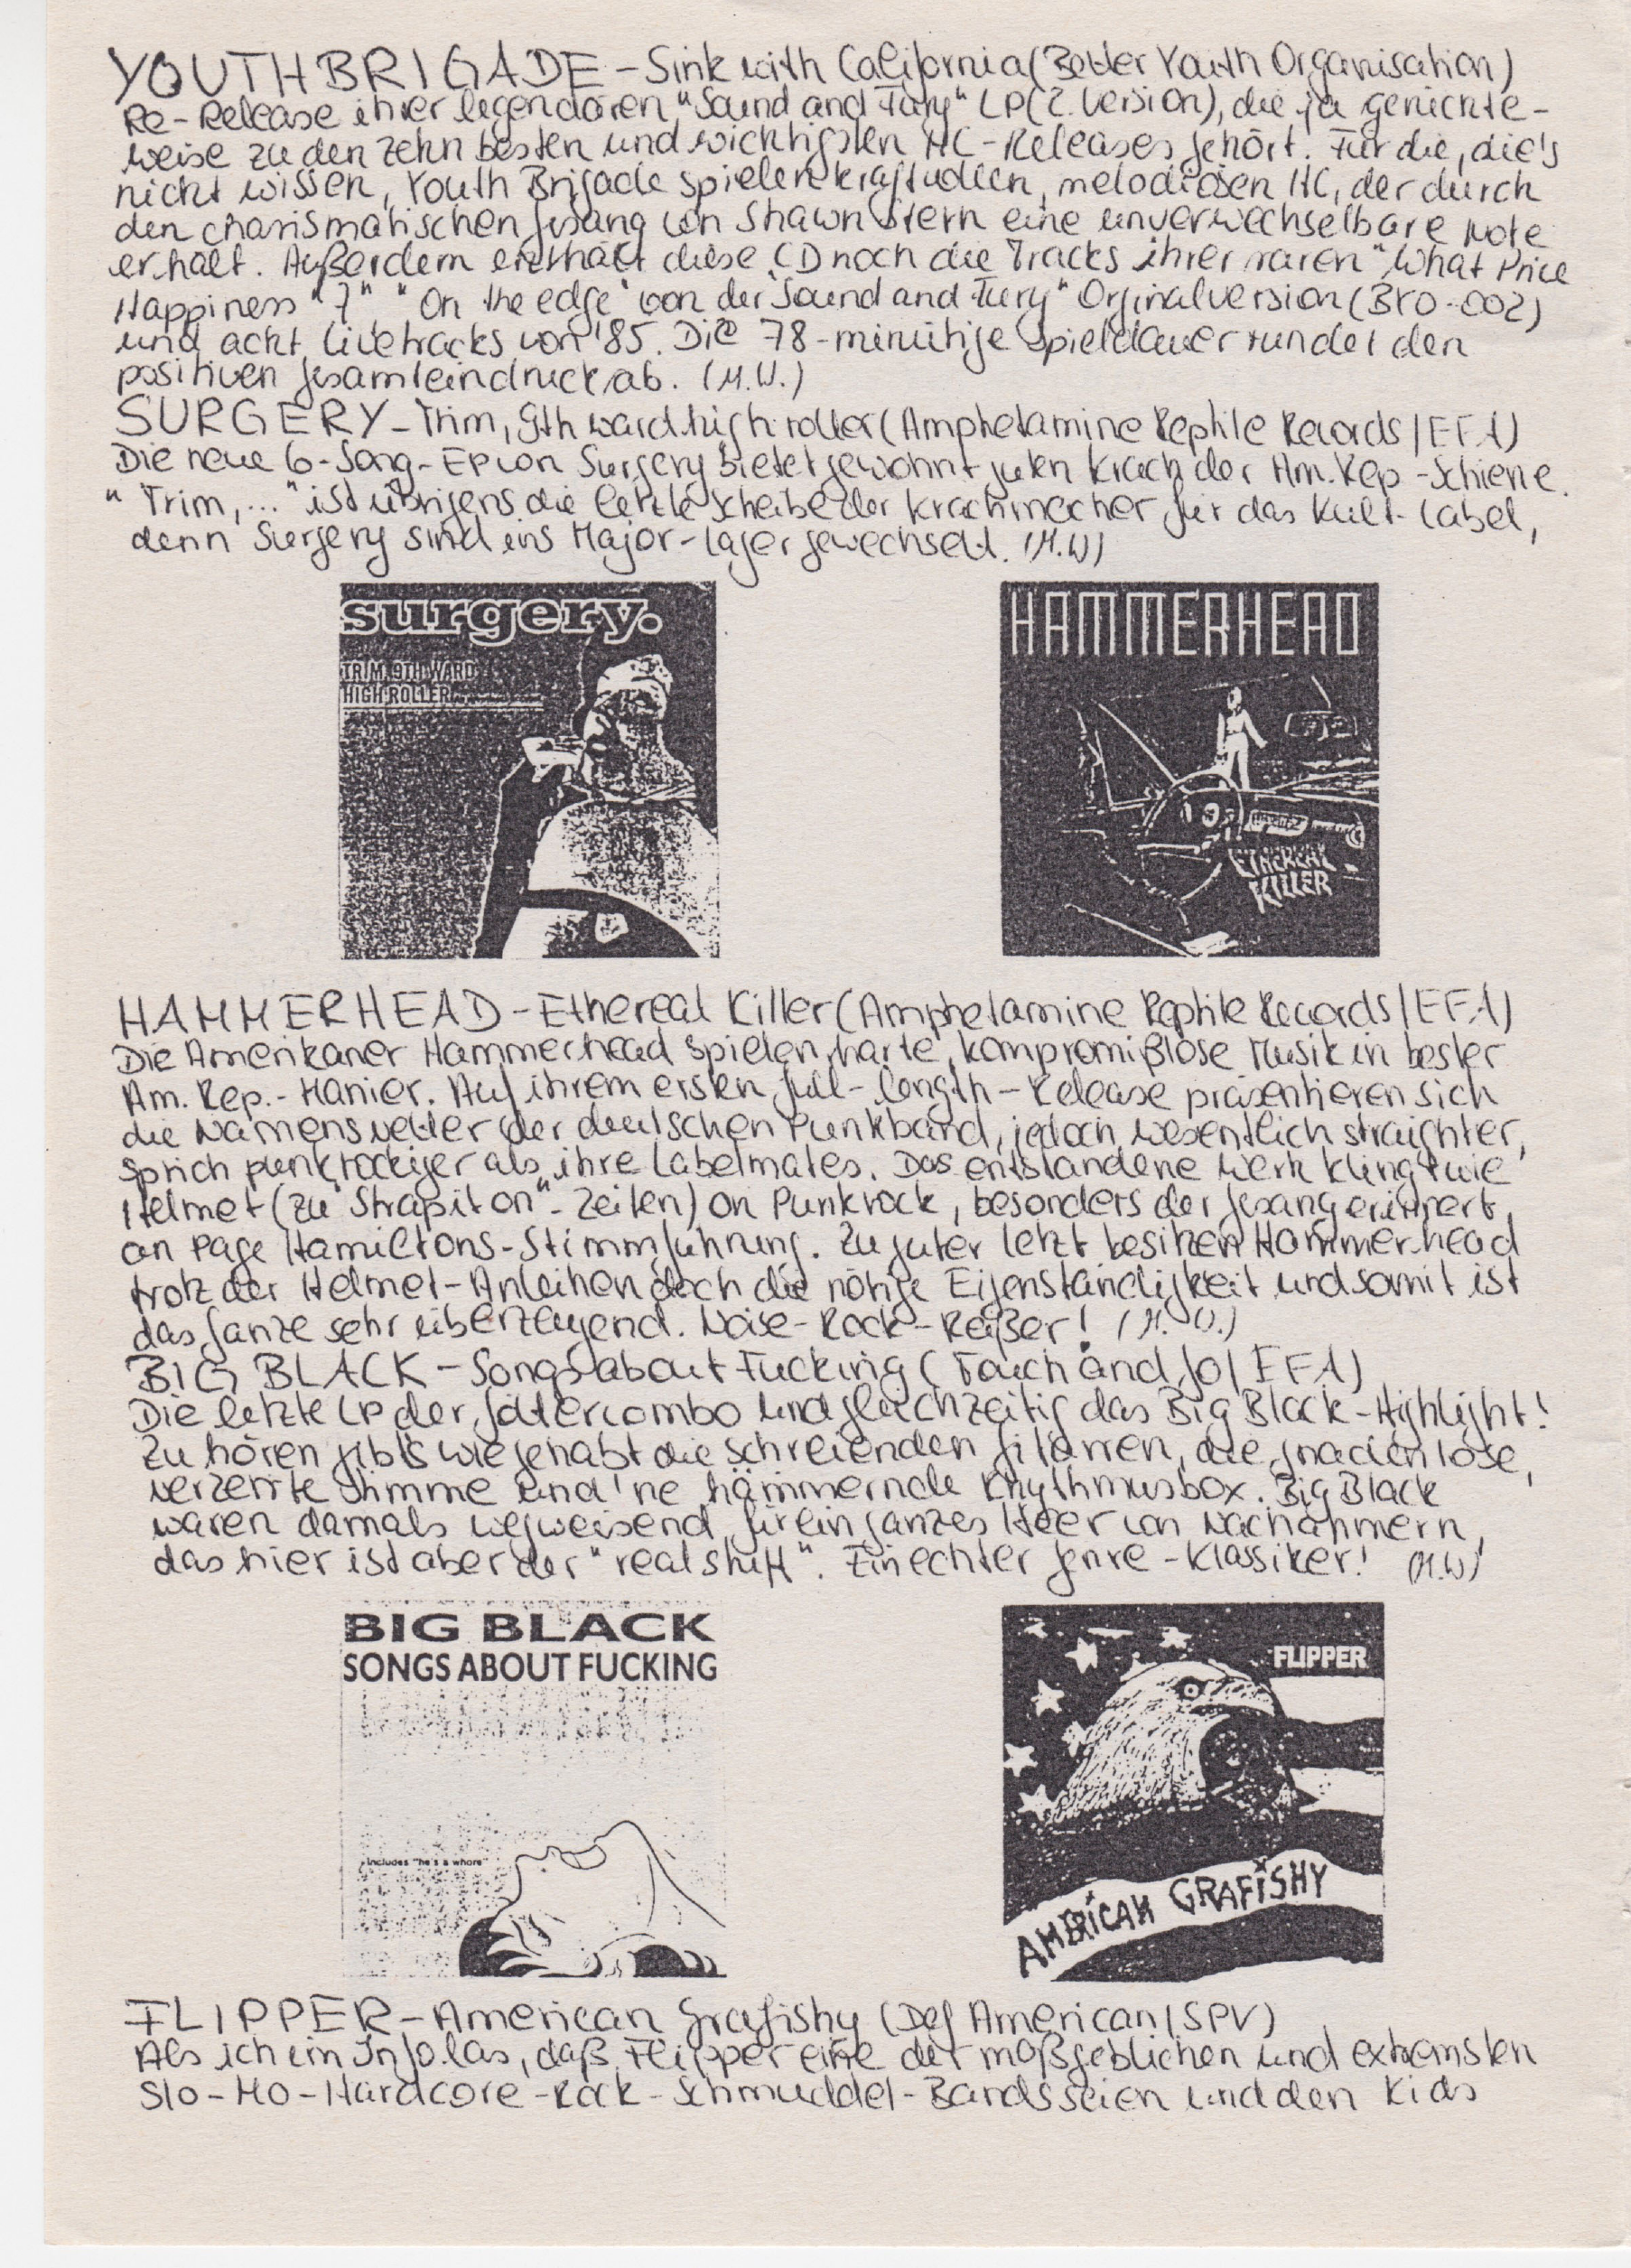 YOUTH BRIGADE - Sink with California (Better Youth Organisation)
Re-Release ihrer legendären "Sound and Fury" LP (2. Version), die ja
weise zu den zehn besten und wichtigsten HC-Releases gehört. Für die, die's
nicht wissen, Youth Brigade spielen kraftvollen, melodiösen HC, der durch
den charismatischen Gesang von Shawn Stern eine unverwechselbare Note
erhält. Außerdem enthält diese CD noch die Tracks ihrer raren "What Price
Happiness" 7", "On the edge" von der "Sound and Fury" Orginalversion (BYO-002)
und acht Livetracks von '85. Die 78-minütige Spieldauer rundet den
positiven Gesamteindruck ab. (M.W.)
SURGERY - Trim, 9th ward high roller (Amphetamine Reptile Records/EFA)
Die neue 6-Song-EP von Surgery bietet gewohnt guten Krach der Am. Rep-Schiene.
"Trim,..." ist übrigens die letzte Scheibe der Krachmacher für das Kult-Label,
denn Surgery sind ins Major-Lager gewechselt. (M.W)
surgery.
TRIM, 9TH WARD
HIGH ROLLER
HAMMERHEAD
ETHEREAL
KILLER
HAMMERHEAD - Ethereal Killer (Amphetamine Reptile Records/EFA)
Die Amerikaner Hammerhead spielen harte, kompromißlose Musik in bester
Am. Rep.- Manier. Auf ihrem ersten full-length-Release präsentieren sich
die Namensvetter der deutschen Punkband, jedoch wesentlich straighter,
sprich punkrockiger als ihre Labelmates. Das entstandene Werk klingt wie
Helmet (zu "Strap it on"- Zeiten) on Punkrock, besonders der Gesang erinnert
an Page Hamiltons-Stimmführung. Zu guter letzt besitzen Hammerhead
trotz der Helmet-Anleihen doch die nötige Eigenständigkeit und somit ist
das ganze sehr überzeugend. Noise-Rock-Reißer! (M.W.)
BIG BLACK - Songs about Fucking (Touch and Go/EFA)
Die letzte LP der Göttercombo und gleichzeitig das Big Black-Highlight!
Zu hören gibt's wie gehabt die schreienden Gitarren, die gnadenlose,
verzerrte Stimme und 'ne hämmernde Rhythmusbox. Big Black
waren damals wegweisend für ein ganzes Heer von Nachahmern,
das hier ist aber der "real shit". Ein echter Genre-Klassiker! (M.W)
BIG BLACK
SONGS ABOUT FUCKING
includes "he's a whore"
FLIPPER
AMERICAN GRAFISHY
FLIPPER - American Grafishy (Def American/SPV)
Als ich im Info las, daß Flipper eine der maßgeblichen und extremsten
Slo-Mo-Hardcore-Rock-Schmuddel-Bands seien und den Kids